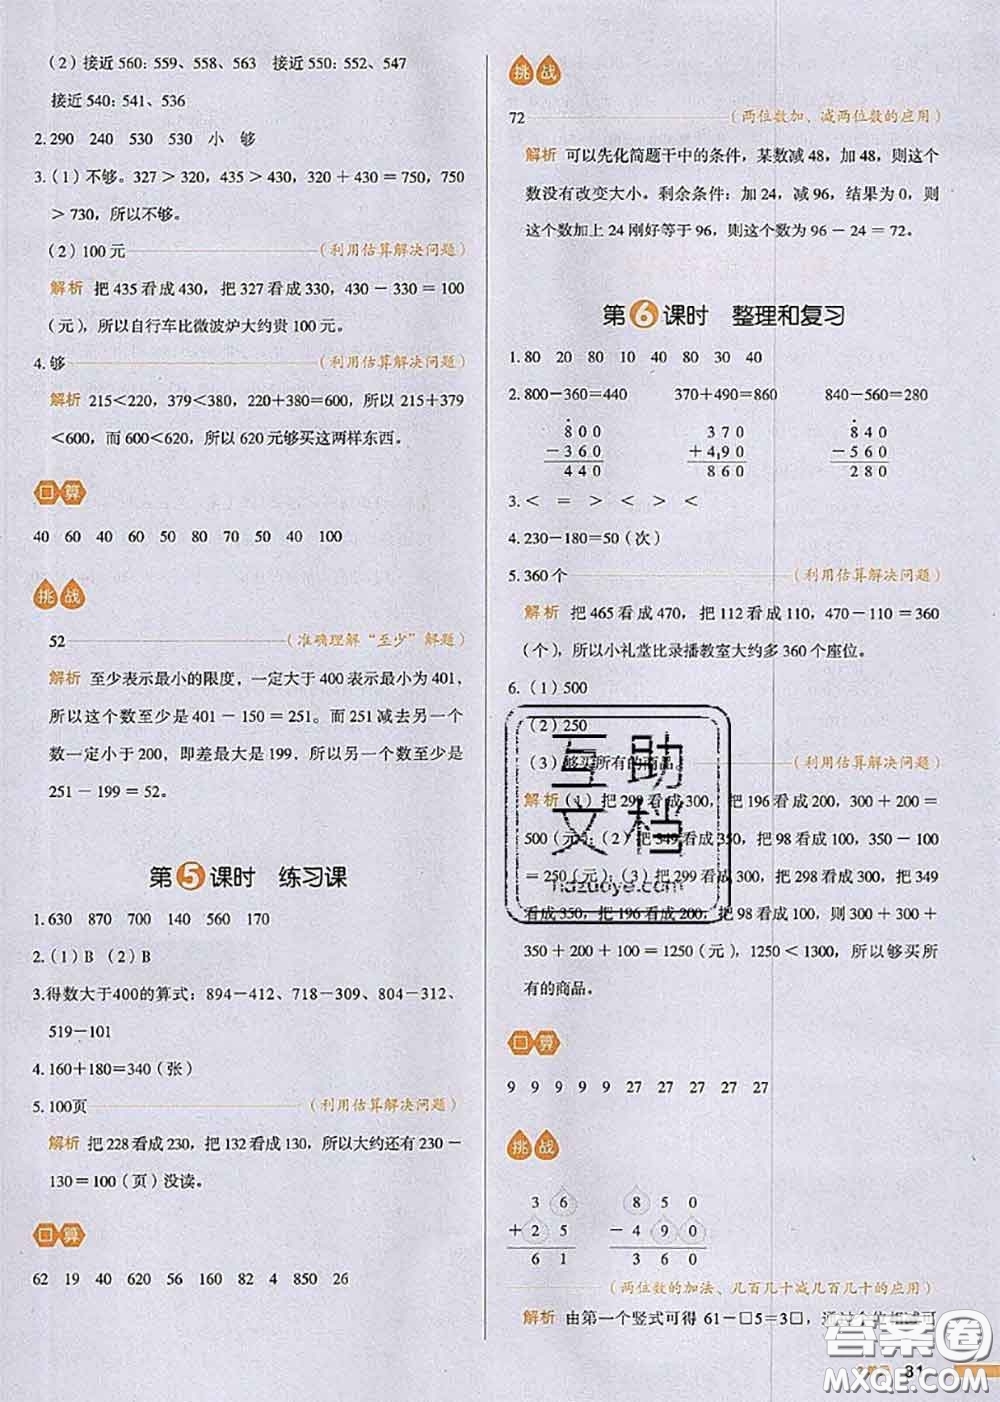 （2）接近 560：559、558、563　接近 550：552、547
接近 540：541、536
2. 290　240　530　530　小　够
3.（1）不够。327 > 320，435 > 430，320 + 430 = 750，750
> 730，所以不够。
（2）100 元（利用估算解决问题）
解析　把 435 看成 430，把 327 看成 330，430 − 330 = 100
（元），所以自行车比微波炉大约贵 100 元。
4. 够（利用估算解决问题）
解析　215<220，379<380，220+380=600，所以 215+379
<600，而 600<620，所以 620 元够买这两样东西。
口算
40　60　40　60　50　80　70　50　40　100
挑战
52（准确理解“至少”解题）
解析　至少表示最小的限度，一定大于 400 表示最小为 401，
所以这个数至少是 401 − 150 = 251。而 251 减去另一个
数一定小于 200，即差最大是 199，所以另一个数至少是
251 − 199 = 52。
第5课时　练习课
1. 630　870　700　140　560　170
2.（1）B　（2）B
3. 得数大于400的算式：894−412、718−309、804−312、
519−101
4. 160+180=340（张）
5. 100页（利用估算解决问题）
解析　把 228 看成 230，把 132 看成 130，所以大约还有 230 −
130 = 100（页）没读。
口算
62　19　40　620　56　160　82　4　850　26
挑战
72（两位数加、减两位数的应用）
解析　可以先化简题干中的条件，某数减 48，加 48，则这个
数没有改变大小。剩余条件：加 24，减 96，结果为 0，则
这个数加上 24 刚好等于 96，则这个数为 96 − 24 = 72。
第6课时　整理和复习
1. 80　20　80　10　40　80　30　40
2. 800−360=440　370+490=860　840−560=280
800　370　840
−360　+490　−560
440　860　280
3. <　=　>　<　>　<
4. 230−180=50（次）
5. 360 个（利用估算解决问题）
解析　把 465 看成 470，把 112 看成 110，470−110 = 360
（个），所以小礼堂比录播教室大约多 360 个座位。
6.（1）500
（2）250
（3）够买所有的商品。（利用估算解决问题）
解析（1）把 299 看成 300，把 196 看成 200，300 + 200 =
500（元）；（2）把 349 看成 350，把 98 看成 100，350 − 100
= 250（元）；（3）把 299 看成 300，把 298 看成 300，把 349
看成 350，把 196 看成 200，把 98 看成 100，则 300 + 300 +
350 + 200 + 100 = 1250（元），1250 < 1300，所以够买所
有的商品。
互助
文档
hdzuoye.com
口算
9　9　9　9　9　27　27　27　27　27　27
挑战
36　850
+25　−490
61　360
（两位数的加法、几百几十减几百几十的应用）
解析　由第一个竖式可得 61−□5=3□，通过
答案圈
MXQE.COM
81